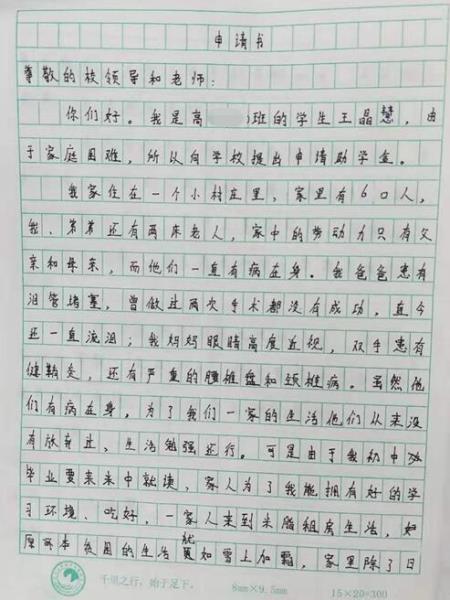 申请书
尊敬的校领导和老师：
你们好。我是高 班的学生王晶慧，由
于家庭困难，所以向学校提出申请助学金。
我家住在一个小村庄里，家里有6口人，
我、弟弟还有两床老人，家中的劳动力只有父
亲和母亲，而他们一直有病在身。我爸爸患有
泪管堵塞，曾做过两次手术都没有成功，直今
还一直流泪；我妈妈眼睛高度近视，双手患有
健鞘炎，还有严重的腰椎盘和颈椎病。虽然他
们有病在身，为了我们一家的生活他们从来没
有放弃过、生活勉强还行。可是由于我初中
毕业要来米中就读，家人为了我能拥有好的学
习环境、吃好，一家人来到米脂租房生活，如
原本贫困的生活就更如雪上加霜，家里除了日
千里之行，始于足下。 8mm×9.5mm 15×20=300